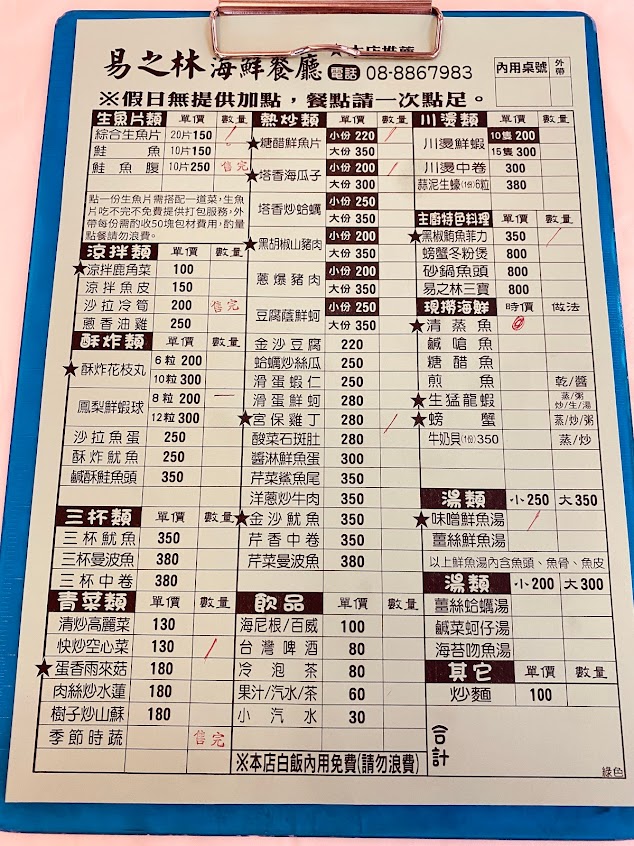 ★本店推薦
易之林海鮮餐廳 電話 08-8867983
內用桌號 外帶
※假日無提供加點，餐點請一次點足。
生魚片類 單價 數量
綜合生魚片 20片150
鮭魚 10片150
鮭魚腹 10片250 售完
點一份生魚片需搭配一道菜，生魚
片吃不完不免費提供打包服務，外
帶每份需酌收50塊包材費用，酌量
點餐請勿浪費。
涼拌類 單價 數量
★涼拌鹿角菜 100
涼拌魚皮 150
沙拉冷筍 200 售完
蔥香油雞 250
酥炸類 單價 數量
★酥炸花枝丸 6粒200
10粒300
鳳梨鮮蝦球 8粒200
12粒300
沙拉魚蛋 250
酥炸魷魚 250
鹹酥鮭魚頭 350
三杯類 單價 數量
三杯魷魚 350
三杯曼波魚 380
三杯中卷 380
青菜類 單價 數量
清炒高麗菜 130
快炒空心菜 130
★蛋香雨來菇 180
肉絲炒水蓮 180
樹子炒山蘇 180
季節時蔬 售完
熱炒類 單價 數量
★糖醋鮮魚片 小份220
大份350
★塔香海瓜子 小份200
大份300
塔香炒蛤蠣 小份250
大份350
★黑胡椒山豬肉 小份200
大份350
蔥爆豬肉 小份200
大份350
豆腐蔭鮮蚵 小份250
大份350
金沙豆腐 220
蛤蠣炒絲瓜 250
滑蛋蝦仁 250
滑蛋鮮蚵 280
★宮保雞丁 280
酸菜石斑肚 280
醬淋鮮魚蛋 300
芹菜鯊魚尾 350
洋蔥炒牛肉 350
★金沙魷魚 350
芹香中卷 350
芹菜曼波魚 380
飲品 單價 數量
海尼根/百威 100
台灣啤酒 80
冷泡茶 80
果汁/汽水/茶 60
小汽水 30
※本店白飯內用免費(請勿浪費)
川燙類 單價 數量
川燙鮮蝦 10隻200
15隻300
川燙中卷 300
蒜泥生蠔(1份)6粒 380
主廚特色料理 單價 數量
★黑椒鮪魚菲力 350
螃蟹冬粉煲 800
砂鍋魚頭 800
易之林三寶 800
現撈海鮮 時價 做法
★清蒸魚
鹹嗆魚
糖醋魚
煎魚 乾/醬
★生猛龍蝦 蒸/粥
炒/生/湯
★螃蟹 蒸/炒/粥
牛奶貝(1份)350 蒸/炒
湯類 小250 大350
★味噌鮮魚湯
薑絲鮮魚湯
以上鮮魚湯內含魚頭、魚骨、魚皮
湯類 小200 大300
薑絲蛤蠣湯
鹹菜蚵仔湯
海苔吻魚湯
其它 單價 數量
炒麵 100
合計
綠色